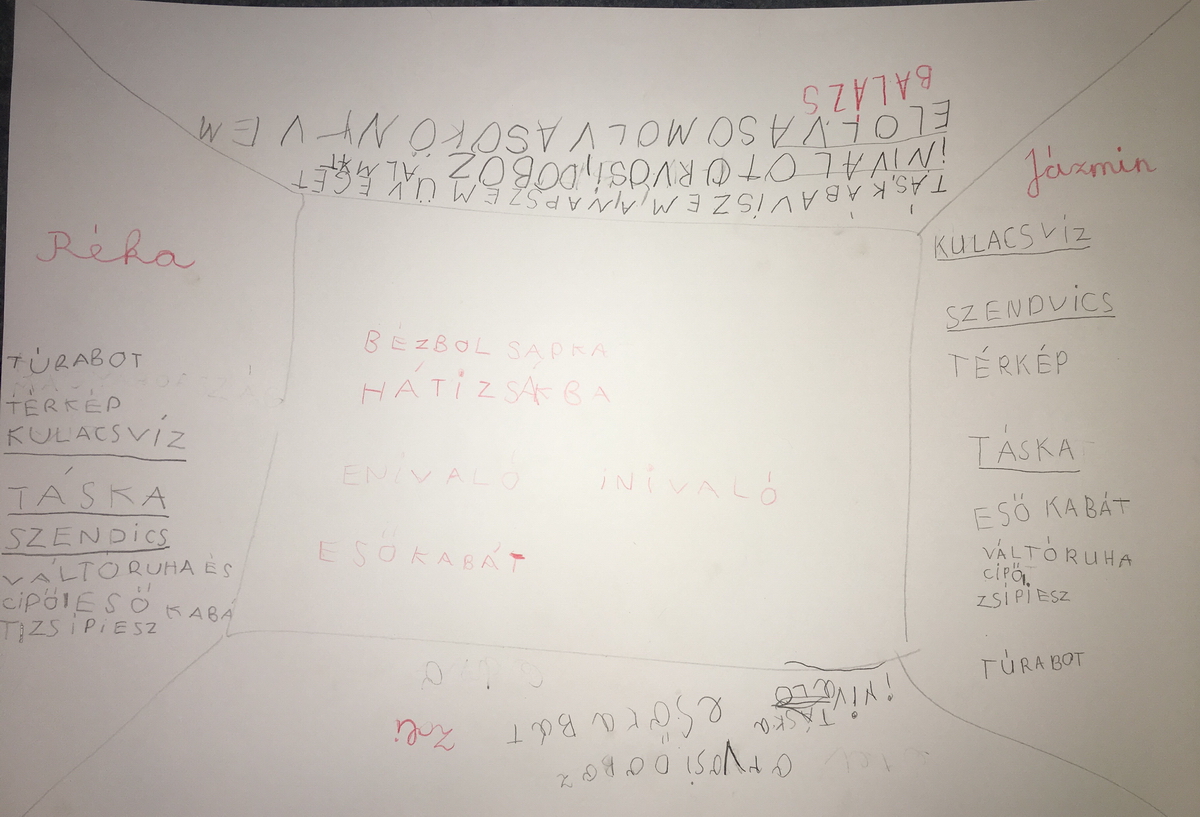 BALÁZS
ELOLVASOMOLVASÓKÖNYVEM
INIVALÓT ORVOSI, DOBOZ ALMÁT
TÁSKÁBAVISZEM, NAPSZEMÜVEGET
Jázmin
KULACSVÍZ
SZENDVICS
TÉRKÉP
TÁSKA
ESŐ KABÁT
VÁLTÓRUHA
CIPŐ,
ZSÍPIESZ
TÚRABOT
Réka
TÚRABOT
TÉRKÉP
KULACSVÍZ
TÁSKA
SZENDICS
VÁLTÓRUHA ÉS
CIPŐ, ESŐ KABÁ
T, ZSÍPIESZ
BÉZBOL SAPKA
HÁTIZSÁKBA
ENIVALÓ INIVALÓ
ESŐKABÁT
INIVALÓ
TÁSKA esőKABÁT Zoli
orvosiDoboz